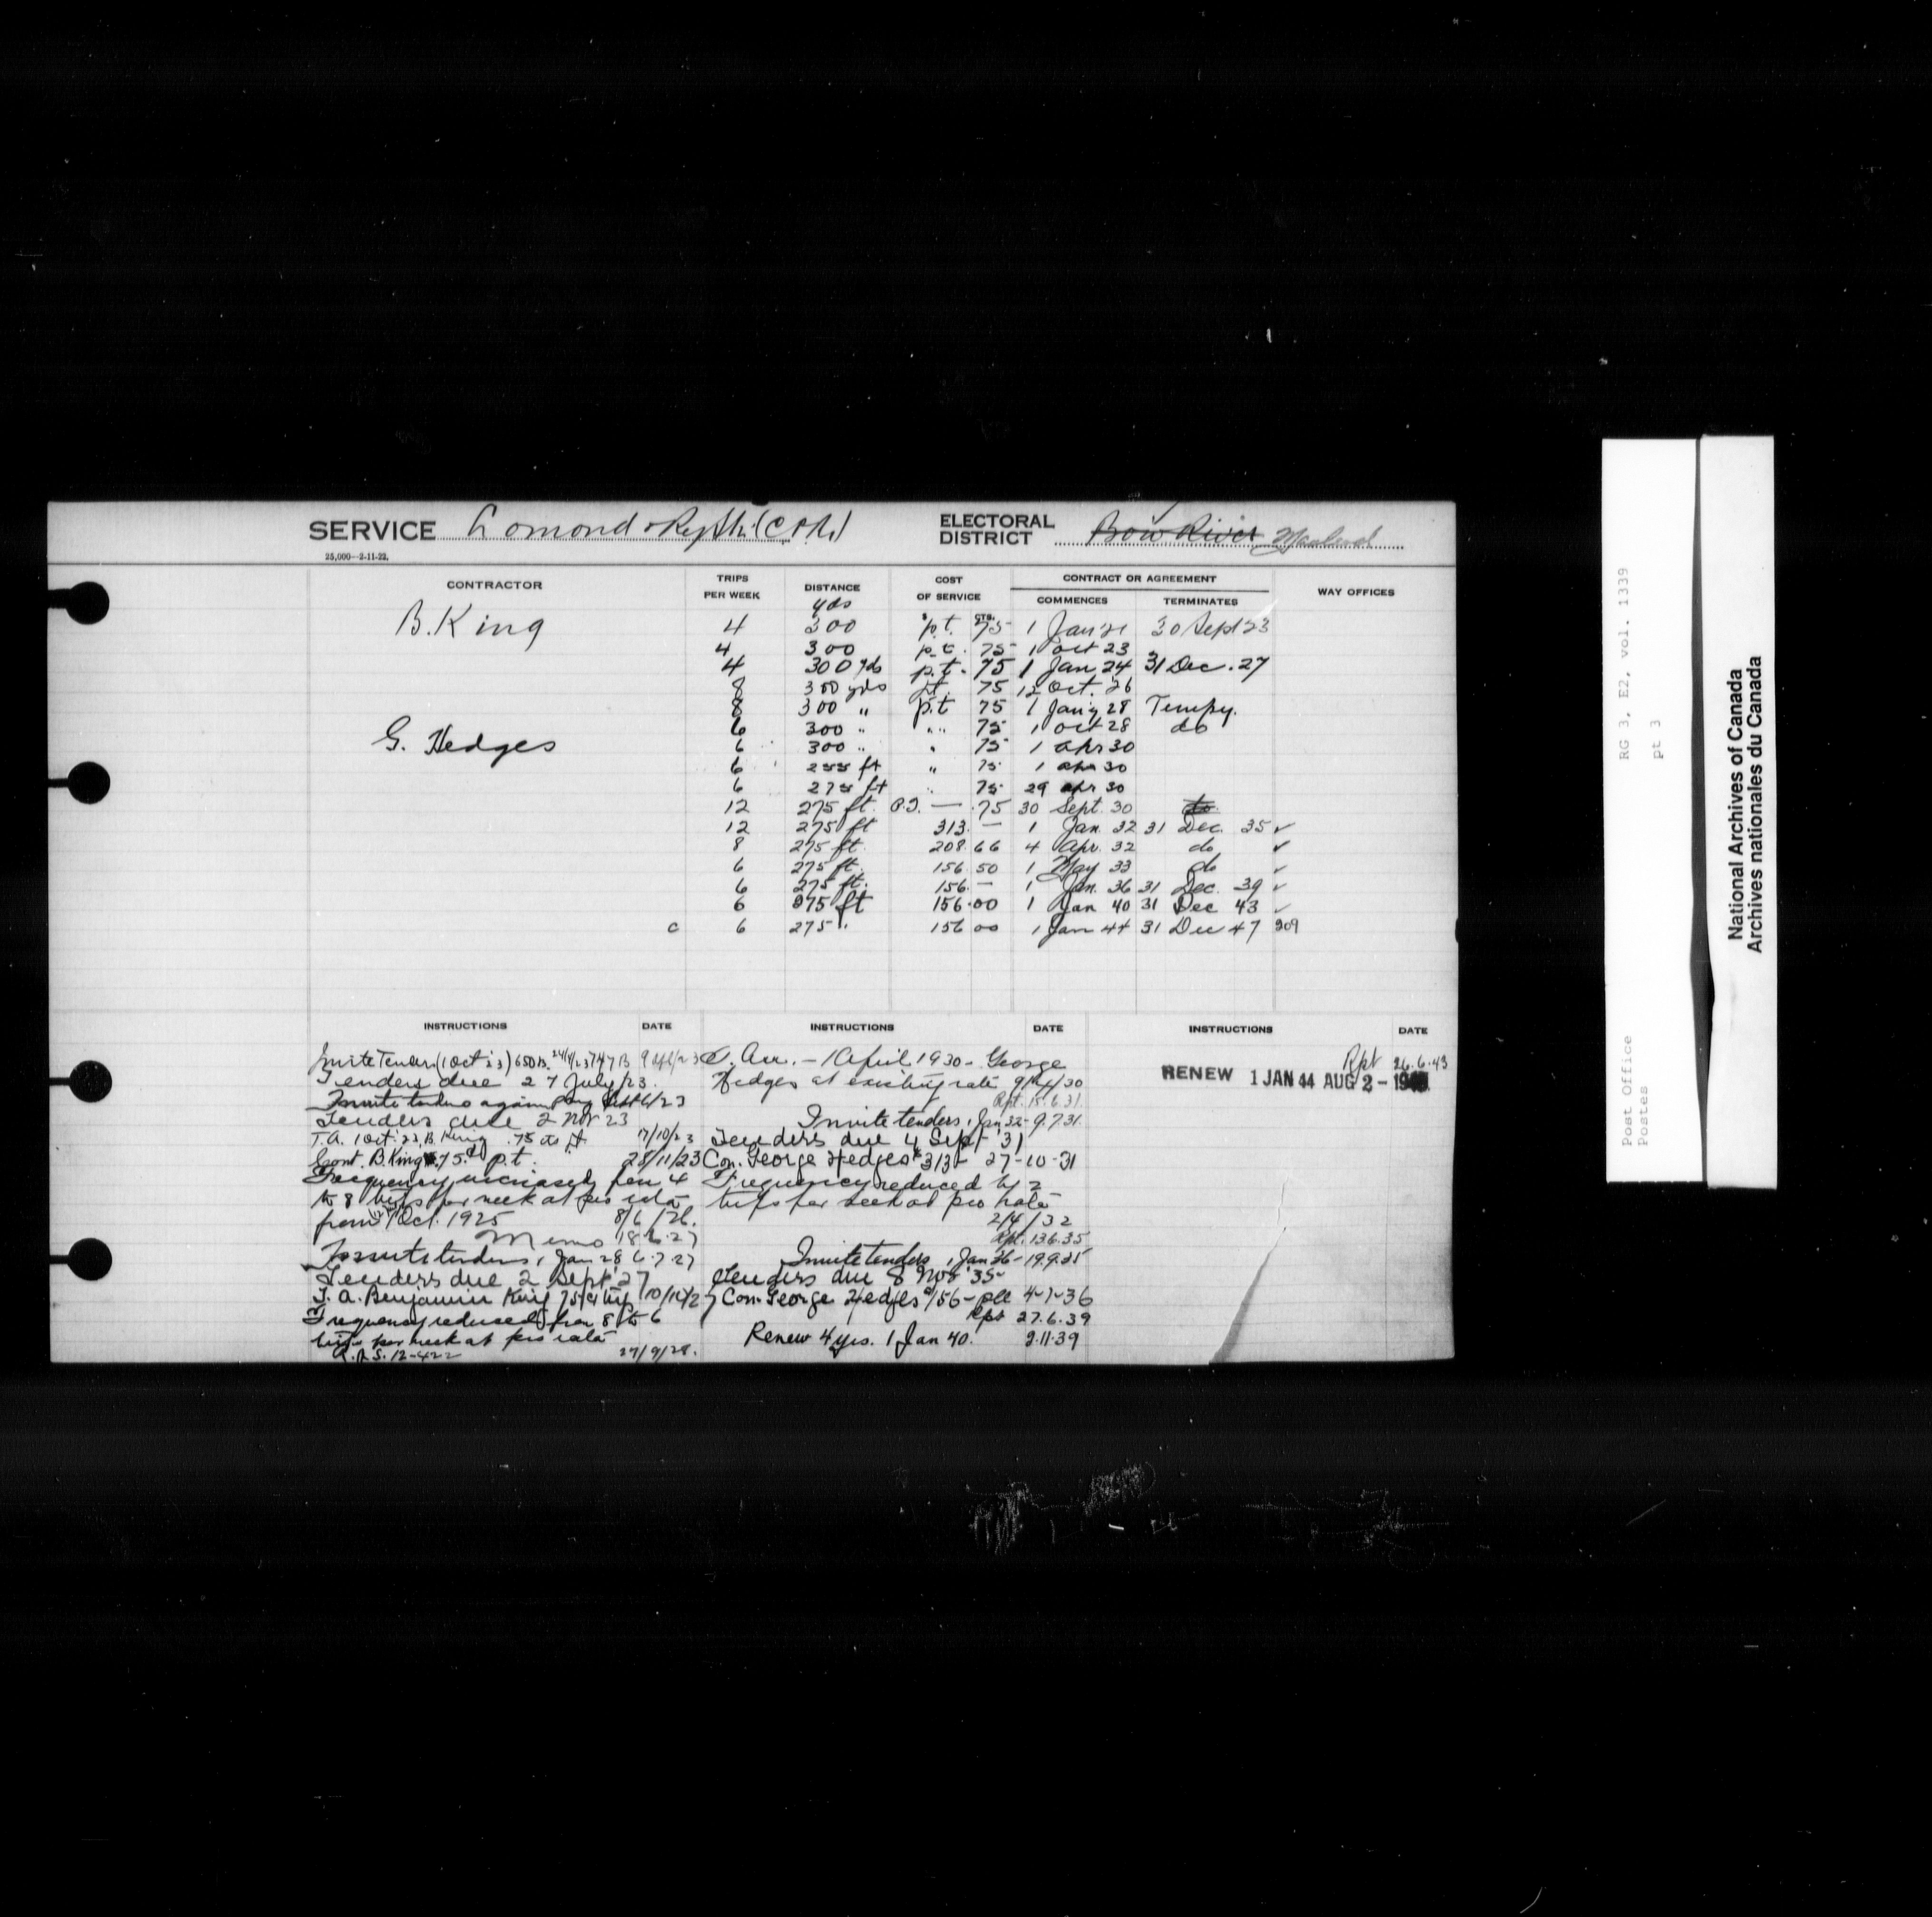 SERVICE Lomond & Ry Stn. (C.P.R.)
ELECTORAL DISTRICT Bow River Macleod
25,000--2-11-22.
CONTRACTOR TRIPS PER WEEK DISTANCE COST OF SERVICE CONTRACT OR AGREEMENT COMMENCES TERMINATES WAY OFFICES
yds $ CTS.
B. King 4 300 p.t. 75 1 Jan 21 30 Sept 23
4 300 p.t. 75 1 Oct 23
4 300 yds p.t. 75 1 Jan 24 31 Dec. 27
8 300 yds p.t. 75 12 Oct. '26
8 300 " p.t 75 1 Jan'y 28 Tempy.
6 300 " " " 75 1 Oct 28 do
G. Hedges 6 300 " " 75 1 Apr 30
6 255 ft " 75 1 Apr 30
6 275 ft " 75 29 Apr 30
12 275 ft. P.T. — .75 30 Sept. 30 do
12 275 ft 313. — 1 Jan. 32 31 Dec. 35 ✓
8 275 ft. 208.66 4 Apr. 32 do ✓
6 275 ft. 156.50 1 May 33 do ✓
6 275 ft. 156. — 1 Jan. 36 31 Dec. 39 ✓
6 275 ft 156.00 1 Jan 40 31 Dec 43 ✓
c 6 275 ". 156 00 1 Jan 44 31 Dec 47 909
INSTRUCTIONS DATE
Invite Tenders (1 Oct '23) 650B. 747B
Tenders due 27 July/23.
Invite tenders again
Tenders due 2 Nov 23
T.A. 1 Oct. 23, B. King .75 cts p.t. 17/10/23
Cont. B. King .75 p.t. 28/11/23
Frequency increased from 4
to 8 trips per week at pro rata
from 12 Oct. 1925 8/6/26.
Memo 18.6.27
Invite tenders, 1 Jan 28 6.7.27
Tenders due 2 Sept '27
T.A. Benjamin King 75 cts trip 10/12/27
Frequency reduced from 8 to 6
trips per week at pro rata
R.A.S. 12-422 27/9/28.
INSTRUCTIONS DATE
— 1 April 1930 - George
Hedges at existing rate 9/4/30
Rpt. 15.6.31.
Invite tenders, 1 Jan 32 - 9.7.31.
Tenders due 4 Sept '31
Con. George Hedges $313- 27-10-31
Frequency reduced by 2
trips per week at pro rata
2/4/32
Rpt. 13.6.35
Invite tenders, 1 Jan 36 - 19.9.35
Tenders due 8 Nov '35
Con. George Hedges $156- 4-1-36
Rpt 27.6.39
Renew 4 yrs. 1 Jan 40. 2.11.39
INSTRUCTIONS DATE
Rpt 26.6.43
RENEW 1 JAN 44 AUG 2 - 1943
Post Office RG 3, E2, vol. 1339
Postes pt 3
National Archives of Canada
Archives nationales du Canada